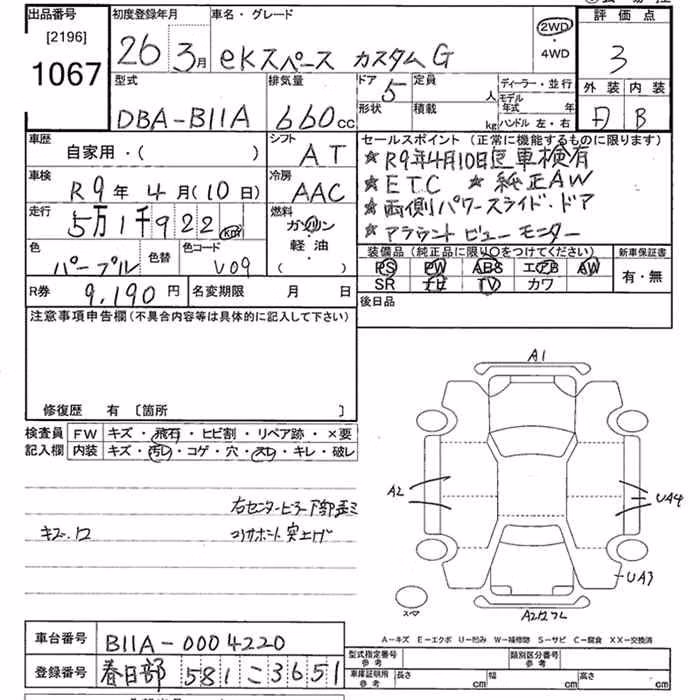 出品番号 初度登録年月 車名・グレード 評価点
[2196] 26年3月 eKスペース カスタムG 2WD・4WD 3
1067
型式 排気量 ドア 5 定員 人 ディーラー・並行 外装 内装
DBA-B11A 660cc 形状 積載 kg モデル年式 年 B
ハンドル 左・右
車歴 シフト セールスポイント (正常に機能するものに限ります)
自家用・( ) AT ★R9年4月10日迄車検有
車検 冷房 ★ETC ★純正AW
R9年4月(10日) AAC ★両側パワースライド・ドア
走行 燃料 ★アラウンドビューモニター
5万1千922km ガソリン
軽油
( )
色 色替 色コード 装備品 (純正品に限り○をつけてください) 新車保証書
パープル V09 PS PW ABS エアB AW 有・無
SR ナビ TV カワ
R券 9,190円 名変期限 月 日 後日品
注意事項申告欄(不具合内容等は具体的に記入して下さい)
修復歴 有 〔箇所 〕
検査員 FW キズ・飛石・ヒビ割・リペア跡・×要
記入欄 内装 キズ・汚レ・コゲ・穴・スレ・キレ・破レ
右センターピラー下部歪ミ
キズ.凹 コアサポート突上げ
A1
A2
UA4
UA3
スペア
A-キズ E-エクボ U-凹み W-補修跡 S-サビ C-腐食 XX-交換済
車台番号 B11A-0004220
登録番号 春日部 581 こ 3651
型式指定番号 参考 類別区分番号 参考
車庫証明所 参考 長さ cm 幅 cm 高さ cm